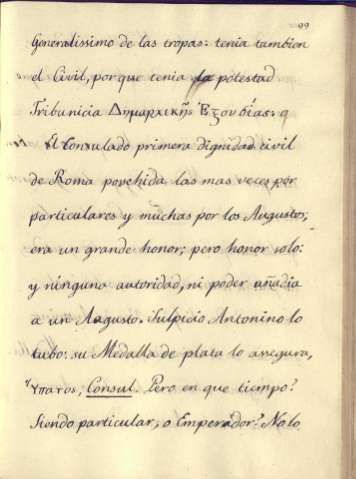 99
Generalissimo de las tropas: tenia tambien
el Civil, porque tenia la potestad
Tribunicia Δημαρχικῆς Ἐξουσίας. q
El Consulado primera dignidad civil
de Roma posehida las mas veces por
particulares y muchas por los Augustos,
era un grande honor; pero honor solo:
y ninguna autoridad, ni poder añadia
a un Augusto. Sulpicio Antonino lo
tubo: su Medalla de plata lo assegura,
Ὑπατος, Consul. Pero en que tiempo?
Siendo particular, o Emperador? No lo